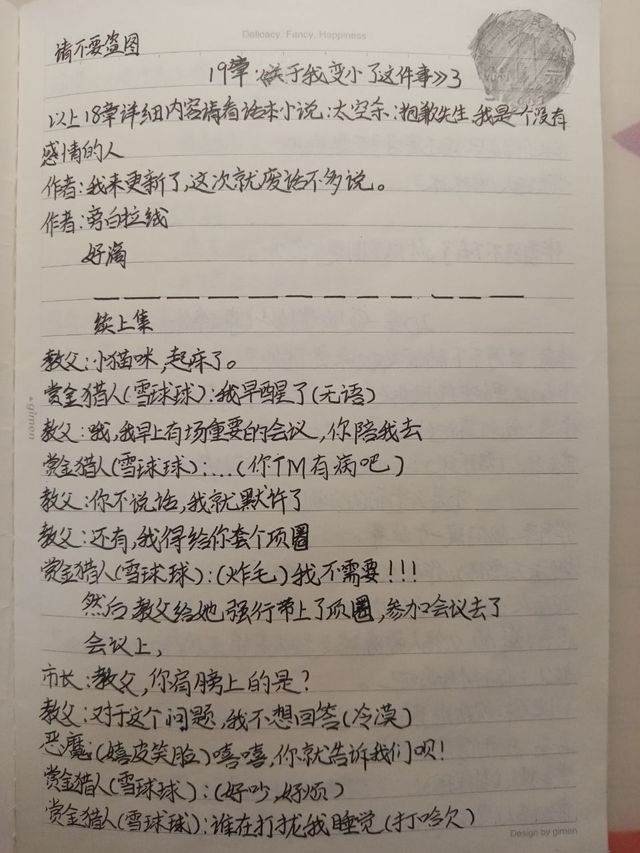 Delicacy. Fancy. Happiness
请不要盗图
19章:《关于我变小了这件事》3
以上18章详细内容请看话本小说:太空杀:抱歉先生,我是个没有
感情的人
作者:我来更新了,这次就废话不多说。
作者:旁白拉线
好嘞
续上集
教父:小猫咪,起床了。
赏金猎人(雪球球):我早醒了(无语)
教父:哦,我早上有场重要的会议,你陪我去
赏金猎人(雪球球):...(你TM有病吧)
教父:你不说话,我就默许了
教父:还有,我得给你套个项圈
赏金猎人(雪球球):(炸毛)我不需要!!!
然后教父给她强行带上了项圈,参加会议去了
会议上,
市长:教父,你肩膀上的是?
教父:对于这个问题,我不想回答(冷漠)
恶魔:(嬉皮笑脸)嘻嘻,你就告诉我们呗!
赏金猎人(雪球球):(好吵,好烦)
赏金猎人(雪球球):谁在打扰我睡觉(打哈欠)
gimen
Design by gimen